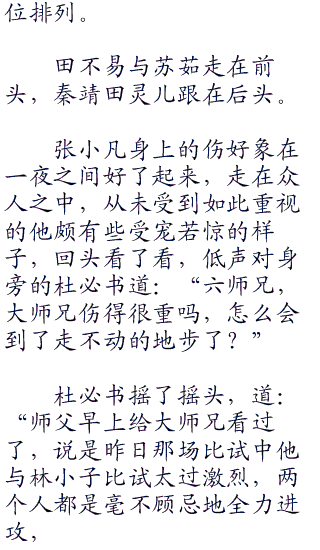 位排列。
田不易与苏茹走在前
头，秦靖田灵儿跟在后头。
张小凡身上的伤好象在
一夜之间好了起来，走在众
人之中，从未受到如此重视
的他颇有些受宠若惊的样
子，回头看了看，低声对身
旁的杜必书道：“六师兄，
大师兄伤得很重吗，怎么会
到了走不动的地步了？”
杜必书摇了摇头，道：
“师父早上给大师兄看过
了，说是昨日那场比试中他
与林小子比试太过激烈，两
个人都是毫不顾忌地全力进
攻，